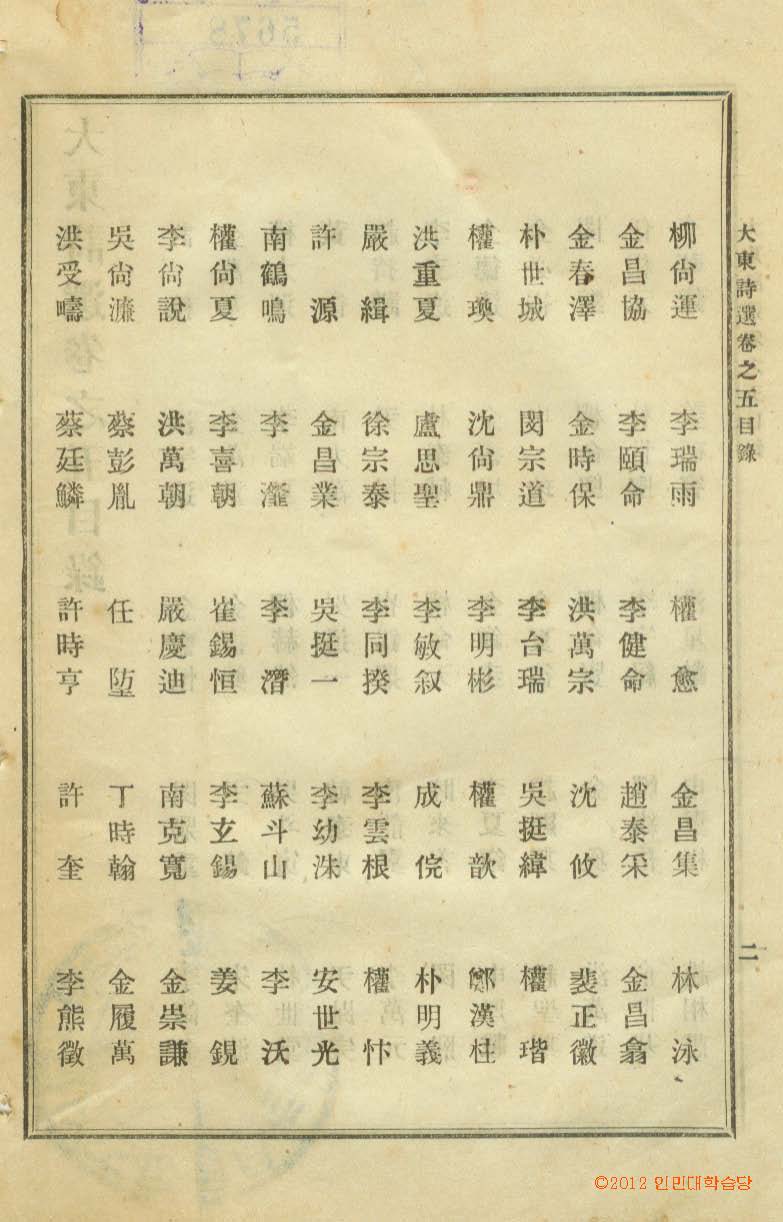 大東詩選卷之五目錄 二
柳尙運 李瑞雨 權愈 金昌集 林泳
金昌協 李頤命 李健命 趙泰采 金昌翕
金春澤 金時保 洪萬宗 沈攸 裴正徽
朴世城 閔宗道 李台瑞 吳挺緯 權瑎
權瑍 沈尙鼎 李明彬 權歆 鄭漢柱
洪重夏 盧思聖 李敏叙 成俒 朴明義
嚴緝 徐宗泰 李同揆 李雲根 權忭
許源 金昌業 吳挺一 李幼洙 安世光
南鶴鳴 李 李潛 蘇斗山 李沃
權尙夏 李喜朝 崔錫恒 李玄錫 姜鋧
李尙說 洪萬朝 嚴慶迪 南克寬 金崇謙
吳尙濂 蔡彭胤 任埅 丁時翰 金履萬
洪受疇 蔡廷鱗 許時亨 許奎 李熊徵
©2012 인민대학습당